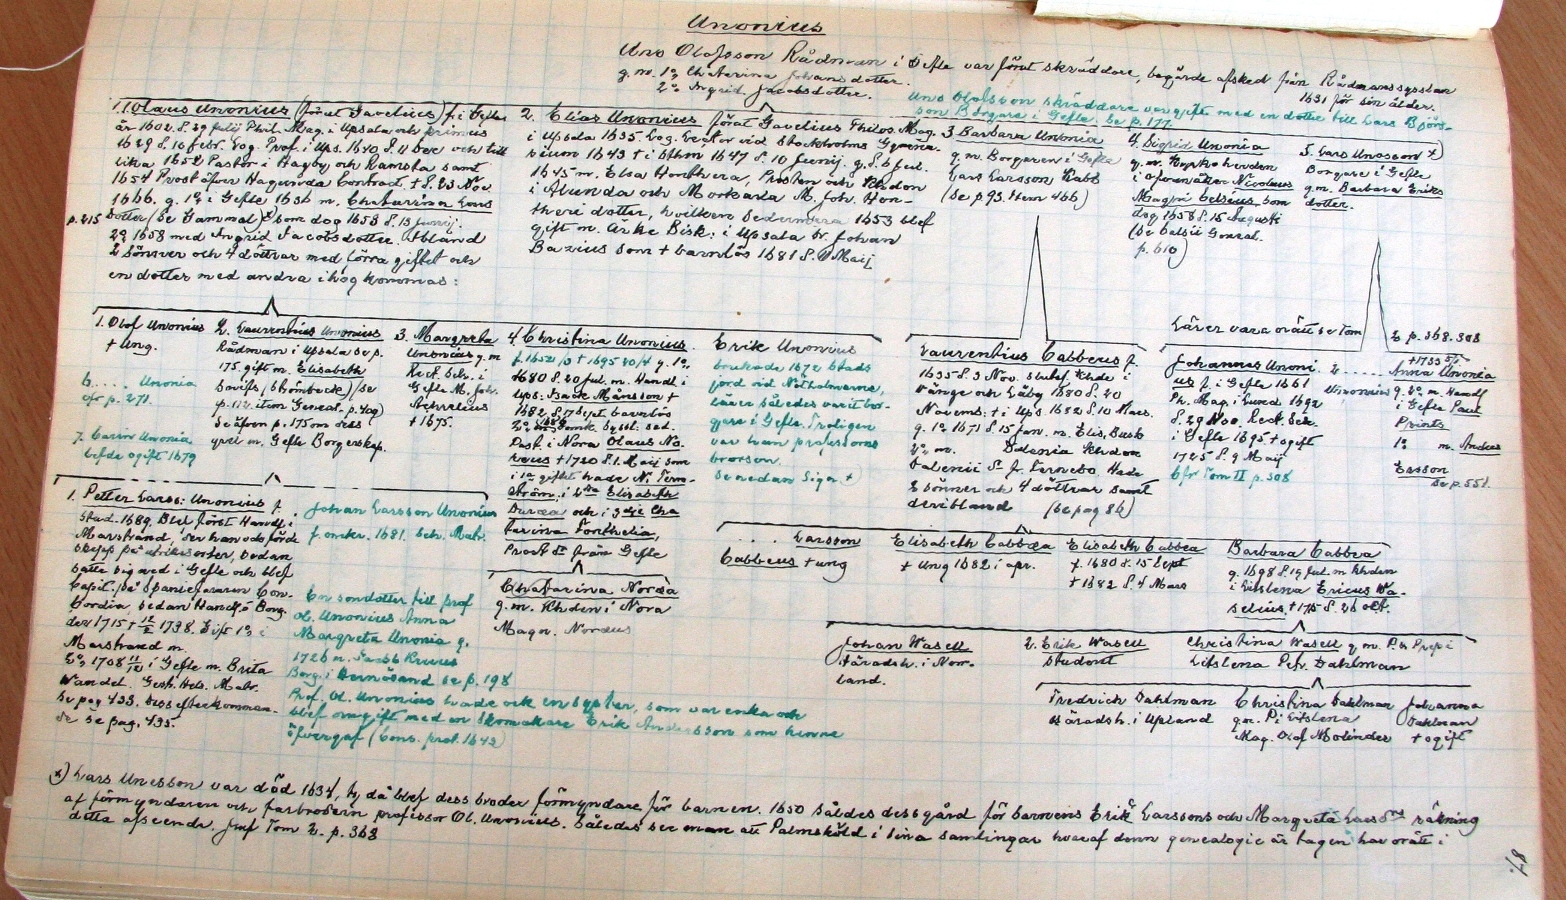 Unonius
Uno Olofsson Rådman i Gefle var förut skräddare, begärde afsked från Rådmanssysslan
g. m. 1o Chaterina Johans dotter. 1631 för sin ålder.
2o Ingrid Jacobsdotter.
Uno Olofsson skräddare var gift med en dotter till Lars Björs-
son Borgare i Gefle. Se p. 177
1. Olaus Unonius (förut Gavelius) f. i Gefle
år 1602. d. 29 julij Phil. Mag. i Upsala och primus
1629 d. 16 febr. Log. Prof. i Ups. 1640 d. 11 Dec och till
lika 1652 Pastor i Hagby och Ramsta samt
1654 Prost öfver Hagunda Contract, † d. 23 Nov
1666. g. 1o i Gefle 1636 m. Chatarina Lars
p. 215 dotter (Se Gammal) som dog 1658 d. 13 Junij.
2o 1658 med Ingrid Jacobsdotter. Ibland
2 söner och 4 döttrar med förra giftet och
en dotter med andra ihogkommas:
2. Elias Unonius förut Gavelius Philos. Mag.
i Upsala 1635. Log. Lector vid Stockholms Gymna-
sium 1643 † i Sthm 1647 d. 10 Junij. g. d. 6 Jul.
1645 m. Elsa Honthera, Prosten och Khdon
i Alunda och Morkarla M. Joh. Hon-
theri dotter, hvilken sedermera 1653 blef
gift m. Arke Bisk: i Upsala Dr. Johan
Bazius som † barnlös 1681 d. Maij
3 Barbara Unonia
g. m. Borgaren i Gefle
Lars Larsson Kabb
(Se p. 93. Item 466)
4. Sigrid Unonia
g. m. Kyrkoherden
Nicolaus
Magni Celsius, som
dog 1658 d. 15 Augusti
(Se Celsii Geneal.
p. 610)
5. Lars Unosson x)
Borgare i Gefle
g. m. Barbara Eriks
dotter.
1. Olof Unonius
† ung.
2. Laurentius Unonius
Rådman i Upsala se p.
175. gift m. Elisabeth
Davifs, (Strömbeck)/(se
p. 112 item Geneal. p. 409)
Se äfven p. 175 om dess
m. Gefle Borgerskap.
3. Margreta
Unonius g. m.
Rect. Sch. i
Gefle M. Joh.
Schrelius
† 1675.
4. Christina Unonius.
f. 1652 1/3 † 1695 20/4 g. 1o
1680 d. 20 Jul. m. Handl. i
Ups: Isack Månsson †
1682 d. 17 Sept. barnlös
Past. i Nora Olaus No-
reus † 1720 d. 1. Maij som
i 1a giftet hade N. Tern-
ström, i 2dra Elisabeth
Buræa och i 3dje Cha
tarina Fonthelia,
Prost Dr från Gefle
Erik Unonius
brukade 1672 Stads
jord vid Näthalmarne,
lärer således varit bor-
gare i Gefle. Troligen
var han professorns
brorson.
Se nedan Sign. †
6. .... Unonia
cfr p. 271.
7. Carin Unonia
lefde ogift 1679
Laurentius Cabbeus f.
1635 d. 3 Nov. slutel. Khde i
Vänge och Läby 1680 d. 20
Novemb. † i Ups. 1682 d. 10 Mars.
g. 1o 1671 d. 15 Jan. m. Elis. Busk
2o m. Dalenia Khdon
Dalenii Dr fr. Ternebo. Hade
2 sönner och 4 döttrar samt
deribland (se pag 86)
Lärer vara orätt se Tom 2 p. 368. 308
Johannes Unoni-
us f. i Gefle 1661
Ph. Mag. i Lund 1692
d. 29 Nov. Rect. Sch.
i Gefle 1695 † ogift
1725 d. 9 Maij
Cfr Tom II p. 308
2. ....
Unonius
† 1733
Anna Unonia
g. 2o m. Handl
i Gefle Paul
Prints
1o m. Anders
Ersson
Se p. 551.
1. Petter Larss: Unonius f.
Stud. 1689. Blef först Handl. i
Marstrand, der han och förde
skepp på utrikes orter, sedan
satte sig ned i Gefle och blef
Capit. på Spaniefararen Con-
cordia, sedan Handl. o Borg.
der 1715 † 12/2 1738. Gift 1o i
Marstrand m.
2o 1708 11/12 i Gefle m. Brita
Wandel. Gesh. Hds. Matr.
Se pag 433. Dess efterkomman-
de se pag. 435.
Johan Larsson Unonius
f. omkr. 1681. Sch. Matr.
En sondotter till prof
Ol. Unonius Anna
Margreta Unonia g.
1726 m. Jacob Kruus
Borg. i Hernösand se p. 198
Prof. Ol. Unonius hade ock en syster, som var enka och
blef omgift med en skomakare Erik Andersson som henne
öfvergaf (Cons. prot. 1642)
Chatarina Norœa
g. m. Khden i Nora
Magn. Nordus
.... Larsson
Cabbeus † ung
Elisabeth Cabbœa
† ung 1682 i apr.
Elisabeth Cabbea
f. 1680 d. 15 Sept
† 1682 d. 4 Mars
Barbara Cabbea
g. 1698 d. 19 Jul. m Khden
i Litslena Ericus Wa-
selius, † 175 d. 26 oct.
Johan Wasell
Häradsh. i Norr-
land.
2. Erik Wasell
Student
Christina Wasell g m. P. o Prep i
Litslena Petr. Dahlman
Fredrich Dahlman
Häradsh. i Upland
Christina Dahlman
g. m. P. i Litslena
Mag. Olof Molinder
Johanna
Dahlman
† ogift
x) Lars Unesson var död 1634, ty då blef dess broder förmyndare för barnen. 1650 såldes dess gård för barnens Erik Larssons och Margreta Larsdrs räkning
af förmyndaren och farbrodern professor Ol. Unonius. Således ser man att Palmsköld i sina samlingar hvaraf denna genealogie är tagen har orätt i
detta afseende. Jmf Tom 2. p. 368
87.